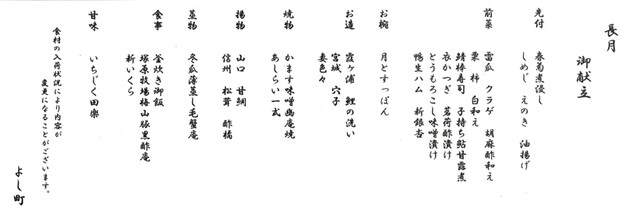 長月
御献立
先付
春菊煮浸し
しめじ えのき 油揚げ
前菜
雷瓜 クラゲ 胡麻酢和え
栗 柿 白和え
鯖棒寿司 子持ち鮎甘露煮
衣かつぎ 茗荷酢漬け
とうもろこし味噌漬け
鴨生ハム 新銀杏
お椀
月とすっぽん
お造
霞ヶ浦 鯉の洗い
宮城 穴子
妻色々
焼物
かます味噌幽庵焼
あしらい一式
揚物
山口 甘鯛
信州 松茸 酢橘
蒸物
冬瓜薄蒸し毛蟹庵
食事
釜炊き御飯
塚原牧場梅山豚黒酢庵
新いくら
甘味
いちじく田楽
食材の入荷状況により内容が
変更になることがございます。
よし町